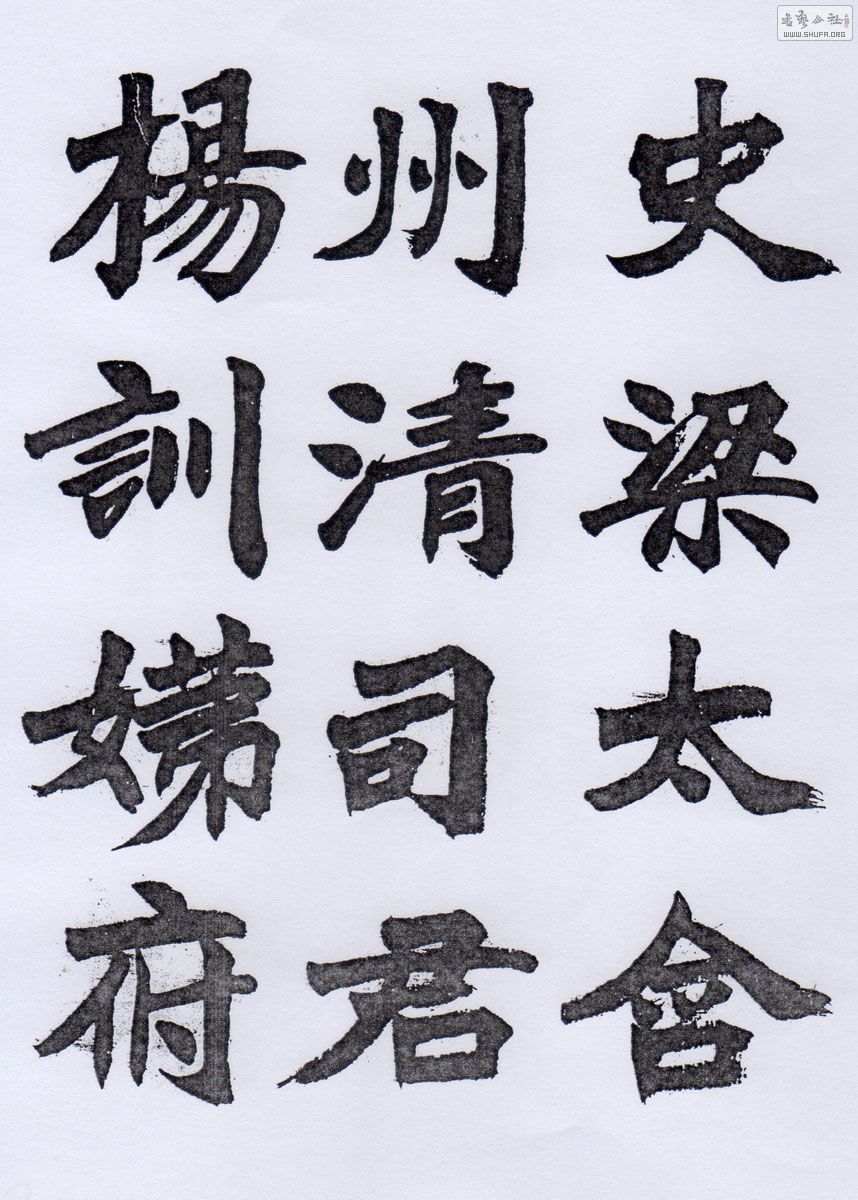 楊州史
訓清梁
司太
府君會
書藝公社
WWW.SHUFA.ORG